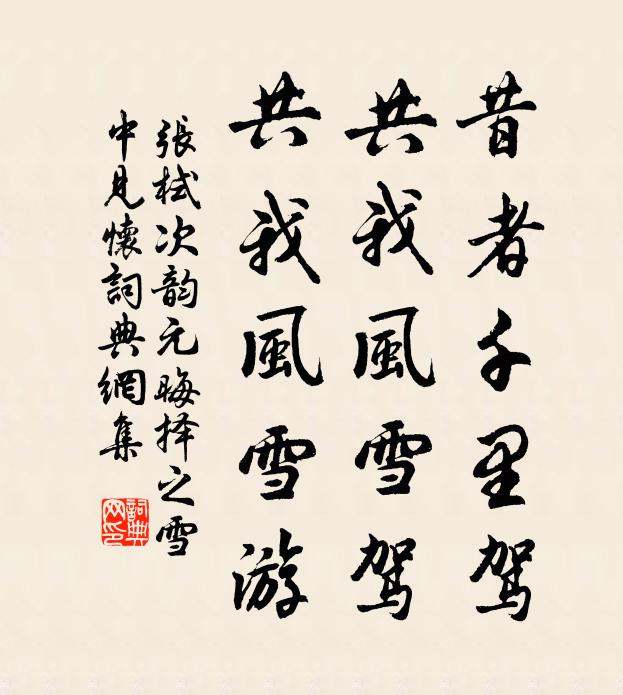 昔者千里駕
共我風雪駕
共我風雪游
張栻次韵元晦择之雪
中見懷詞典網集
詞典網印